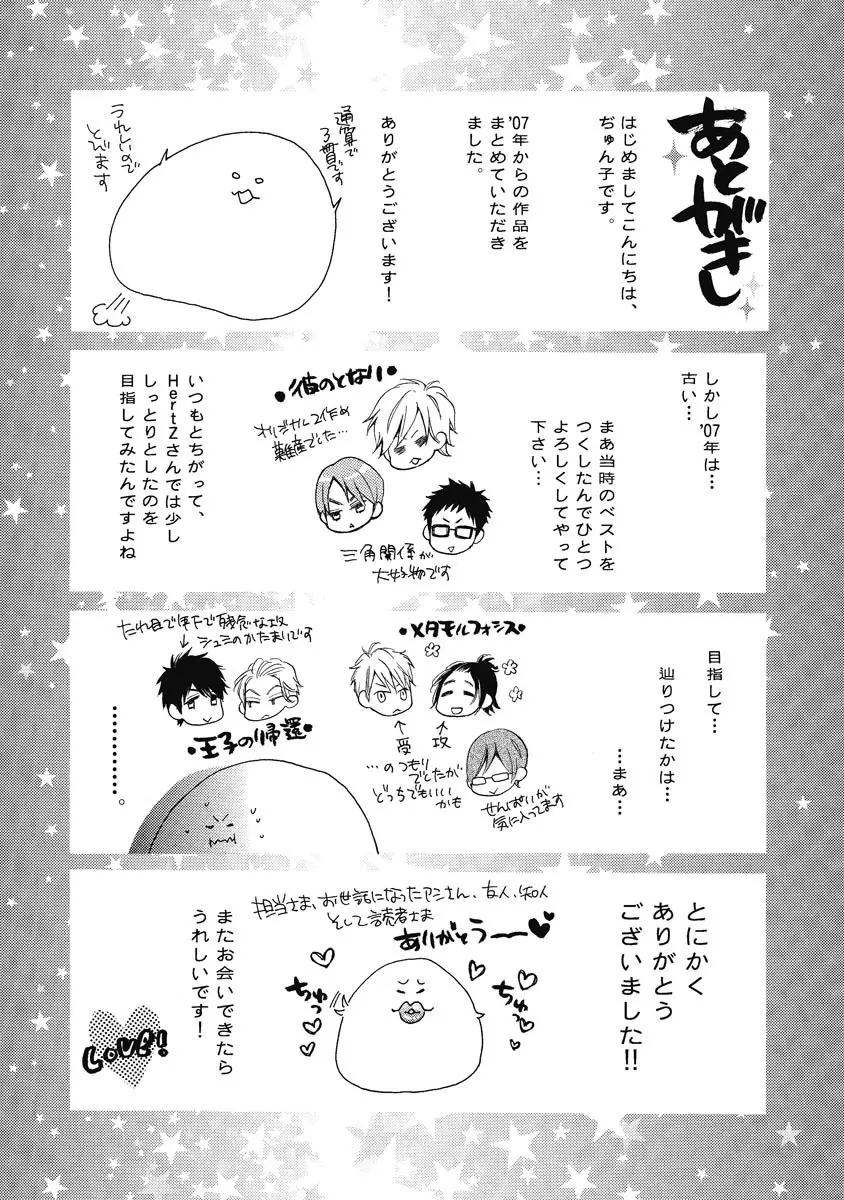 あとがき
はじめましてこんにちは、
ぢゅん子です。
'07年からの作品を
まとめていただき
ました。
ありがとうございます!
通算で
3冊目です
うれしいので
とびます
しかし'07年は…
古い…
まあ当時のベストを
つくしたんでひとつ
よろしくしてやって
下さい…
彼のとなり
オリジナル2作目
難産でした…
三角関係が
大好物です
いつもとちがって、
HertZさんでは少し
しっとりとしたのを
目指してみたんですよね
目指して…
辿りつけたかは…
…まあ…
メタモルフォシス
↑受
↑攻
…のつもり
でしたが
どっちでもいい
かも
せんぱいが
気に入ってます
たれ目で年下で強気な攻
シュミのかたまりです
王子の帰還
………。
とにかく
ありがとう
ございました!!
担当さま、お世話になったアシさん、友人、知人
そして読者さま
ありがとうーー♥
ちゅっ
ちゅっ
またお会いできたら
うれしいです!
LOVE!